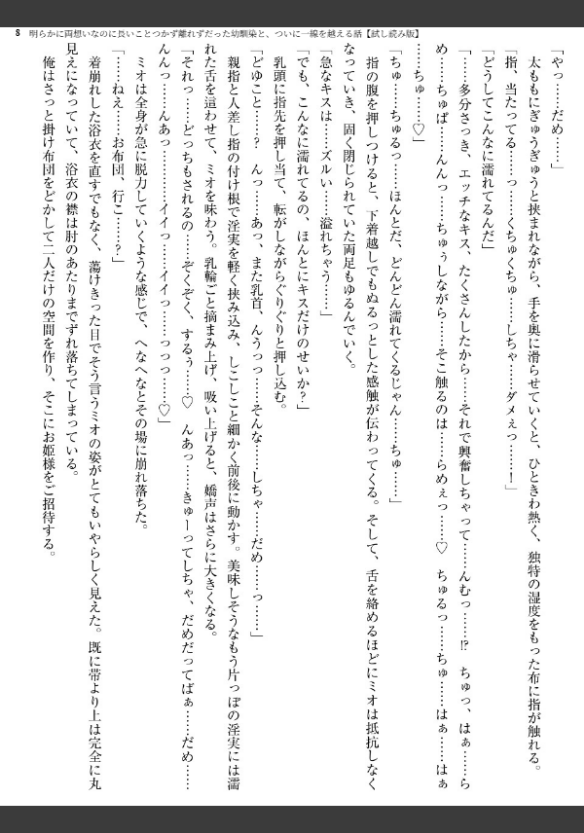 8 明らかに両想いなのに長いことつかず離れずだった幼馴染と、ついに一線を越える話【試し読み版】
「やっ……だめ……」
太ももにぎゅうぎゅうと挟まれながら、手を奥に滑らせていくと、ひときわ熱く、独特の湿度をもった布に指が触れる。
「指、当たってる……っ……くちゅくちゅ……しちゃ……ダメぇっ……！」
「どうしてこんなに濡れてるんだ」
「……多分さっき、エッチなキス、たくさんしたから……それで興奮しちゃって……んむっ……⁉　ちゅっ、はぁ……ら
め……ちゅぱ……んんっ……ちゅぅしながら……そこ触るのは……らめぇっ……♡　ちゅるっ……ちゅ……はぁ……はぁ
……ちゅ……♡」
「ちゅ……ちゅるっ……ほんとだ、どんどん濡れてくるじゃん……ちゅ……」
指の腹を押しつけると、下着越しでもぬるっとした感触が伝わってくる。そして、舌を絡めるほどにミオは抵抗しなく
なっていき、固く閉じられていた両足もゆるんでいく。
「急なキスは……ズルい……溢れちゃう……」
「でも、こんなに濡れてるの、ほんとにキスだけのせいか？」
乳頭に指先を押し当て、転がしながらぐりぐりと押し込む。
「どゆこと……？　んっ……あっ、また乳首、んうっっ……そんな……しちゃ……だめ……っ……」
親指と人差し指の付け根で淫実を軽く挟み込み、しこしこと細かく前後に動かす。美味しそうなもう片っぽの淫実には濡
れた舌を這わせて、ミオを味わう。乳輪ごと摘まみ上げ、吸い上げると、嬌声はさらに大きくなる。
「それっ……どっちもされるの……ぞくぞく、するぅ……♡　んあっ……きゅーってしちゃ、だめだってばぁ……だめ……
んんっ……んあっ……イイっ……イイっ……っっっ……♡」
ミオは全身が急に脱力していくような感じで、へなへなとその場に崩れ落ちた。
「……ねえ……お布団、行こ……？」
着崩れした浴衣を直すでもなく、蕩けきった目でそう言うミオの姿がとてもいやらしく見えた。既に帯より上は完全に丸
見えになっていて、浴衣の襟は肘のあたりまでずれ落ちてしまっている。
俺はさっと掛け布団をどかして二人だけの空間を作り、そこにお姫様をご招待する。